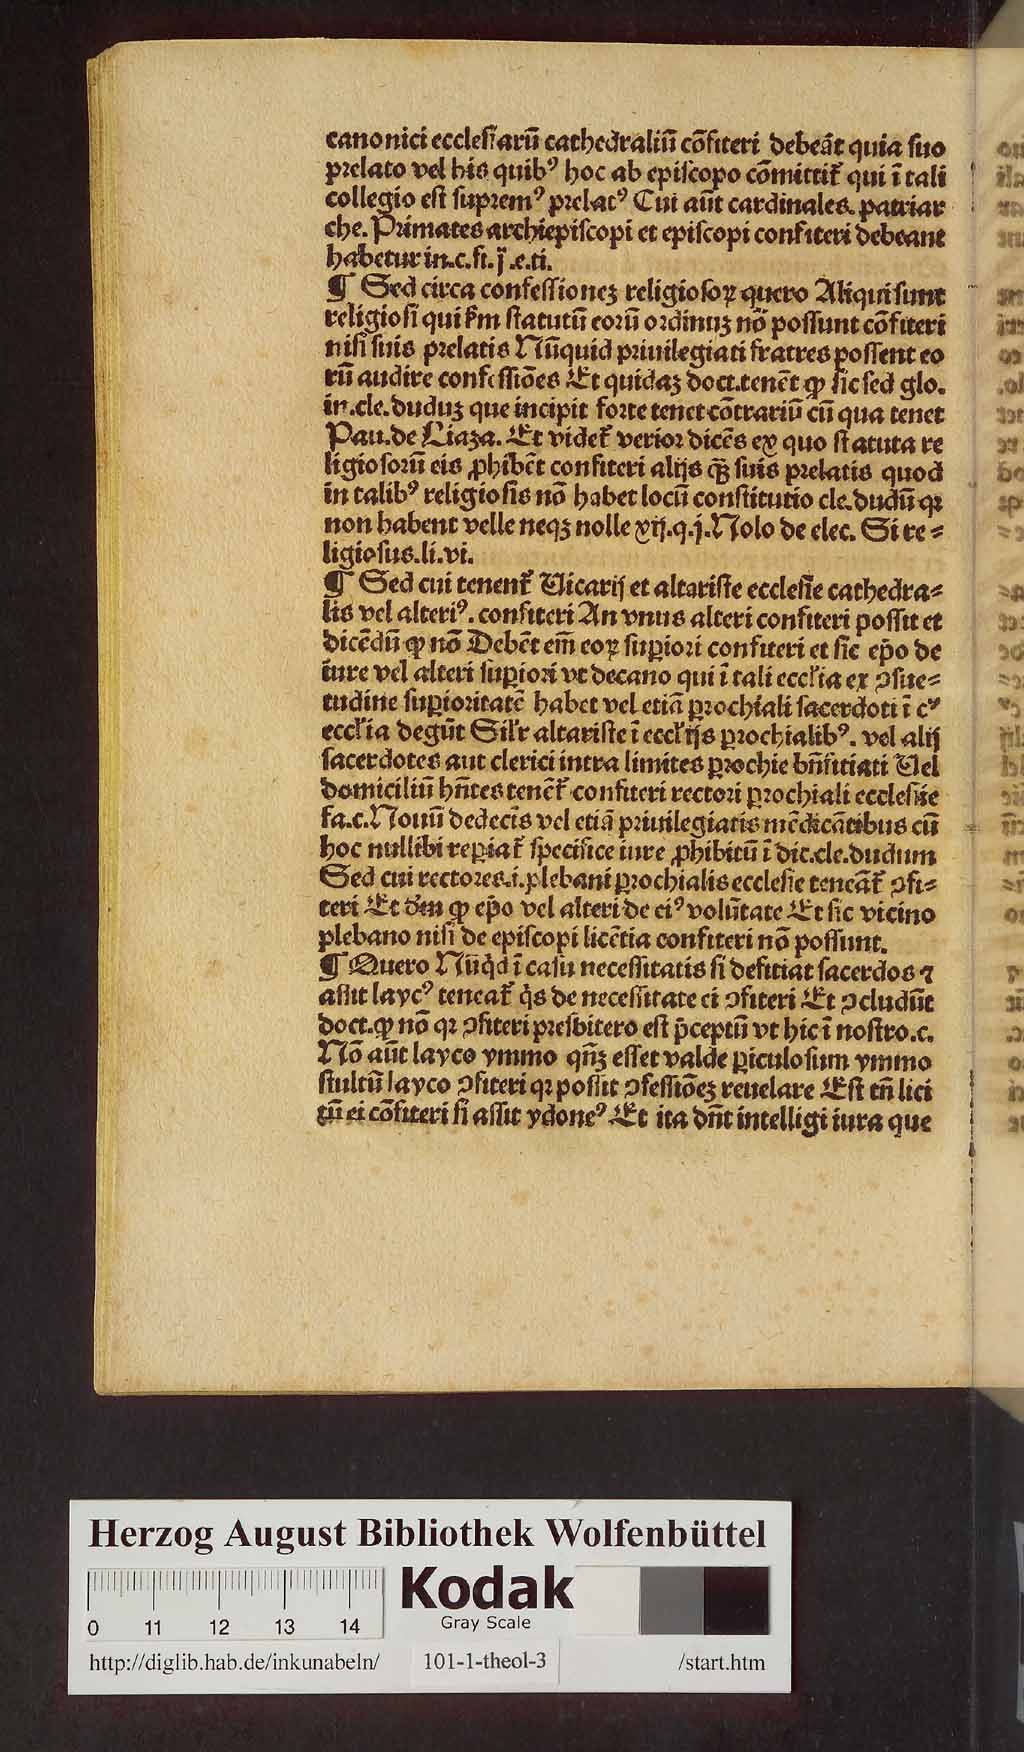 canonici ecclesiarū cathedraliū cōfiteri debeāt quia suo
prelato vel his quibꝰ hoc ab episcopo cōmittit̄ qui ī tali
collegio est supremꝰ prelatꝰ Cui aūt cardinales. patriar
che. Primates archiepiscopi et episcopi confiteri debeant
habetur in.c.fi.ij.e.ti.
¶ Sed circa confessionez religiosoꝝ quero Aliqui sunt
religiosi qui scd̄m statutū eorū ordinuz nō possunt cōfiteri
nisi suis prelatis Nūquid priuilegiati fratres possent eo
rū audire confessiōes Et quidaz doct.tenēt ꝙ sic sed glo.
in.cle.duduz que incipit forte tenet cōtrariū cū qua tenet
Pau.de Liaza. Et videt̄ verior dicēs ex quo statuta re
ligiosorū eis ꝓhibēt confiteri alijs qꝫ̄ suis prelatis quod
in talibꝰ religiosis nō habet locū constitutio cle.dudū qꝛ
non habent velle neqꝫ nolle xij.q.j.Nolo de elec. Si re⸗
ligiosus.li.vi.
¶ Sed cui tenent̄ Vicarij et altariste ecclesie cathedra⸗
lis vel alteriꝰ. confiteri An vnus alteri confiteri possit et
dicēdū ꝙ nō Debēt em̄ eoꝝ suꝑiori confiteri et sic ep̄o de
iure vel alteri suꝑiori vt decano qui ī tali eccl̄ia ex ꝯsue⸗
tudine suꝑioritatē habet vel etiā ꝑrochiali sacerdoti ī cꝰ
eccl̄ia degūt Sil̄r altariste ī eccl̄ijs ꝑrochialibꝰ. vel alij
sacerdotes aut clerici intra limites ꝑrochie bn̄fitiati Vel
domiciliū hn̄tes tenēt̄ confiteri rectori ꝑrochiali ecclesiie
fa.c.Nouū dedecīs vel etiā priuilegiatis mēdicātibus cū
hoc nullibi reꝑiat̄ specifice iure ꝓhibitū ī dic.cle.dudum
Sed cui rectores.i.plebani ꝑrochialis ecclesie teneāt̄ ꝯfi⸗
teri Et dd̄m ꝙ ep̄o vel alteri de eiꝰ volūtate Et sic vicino
plebano nisi de episcopi licētia confiteri nō possunt.
¶ Quero Nūqd̄ ī casu necessitatis si defitiat sacerdos ⁊
assit laycꝰ teneat̄ qs de necessitate ei ꝯfiteri Et ꝯcludūt
doct.ꝙ nō qꝛ ꝯfiteri presbitero est p̄ceptū vt hic ī nostro.c.
Nō aūt layco ymmo qn̄ꝫ esset valde ꝑiculosum ymmo
stultū layco ꝯfiteri qꝛ possit ꝯfessiōez reuelare Est tn̄ lici
tū ei cōfiteri si assit ydoneꝰ Et ita dn̄t intelligi iura que
Herzog August Bibliothek Wolfenbüttel
0 11 12 13 14
Kodak
Gray Scale
http://diglib.hab.de/inkunabeln/ 101-1-theol-3 /start.htm